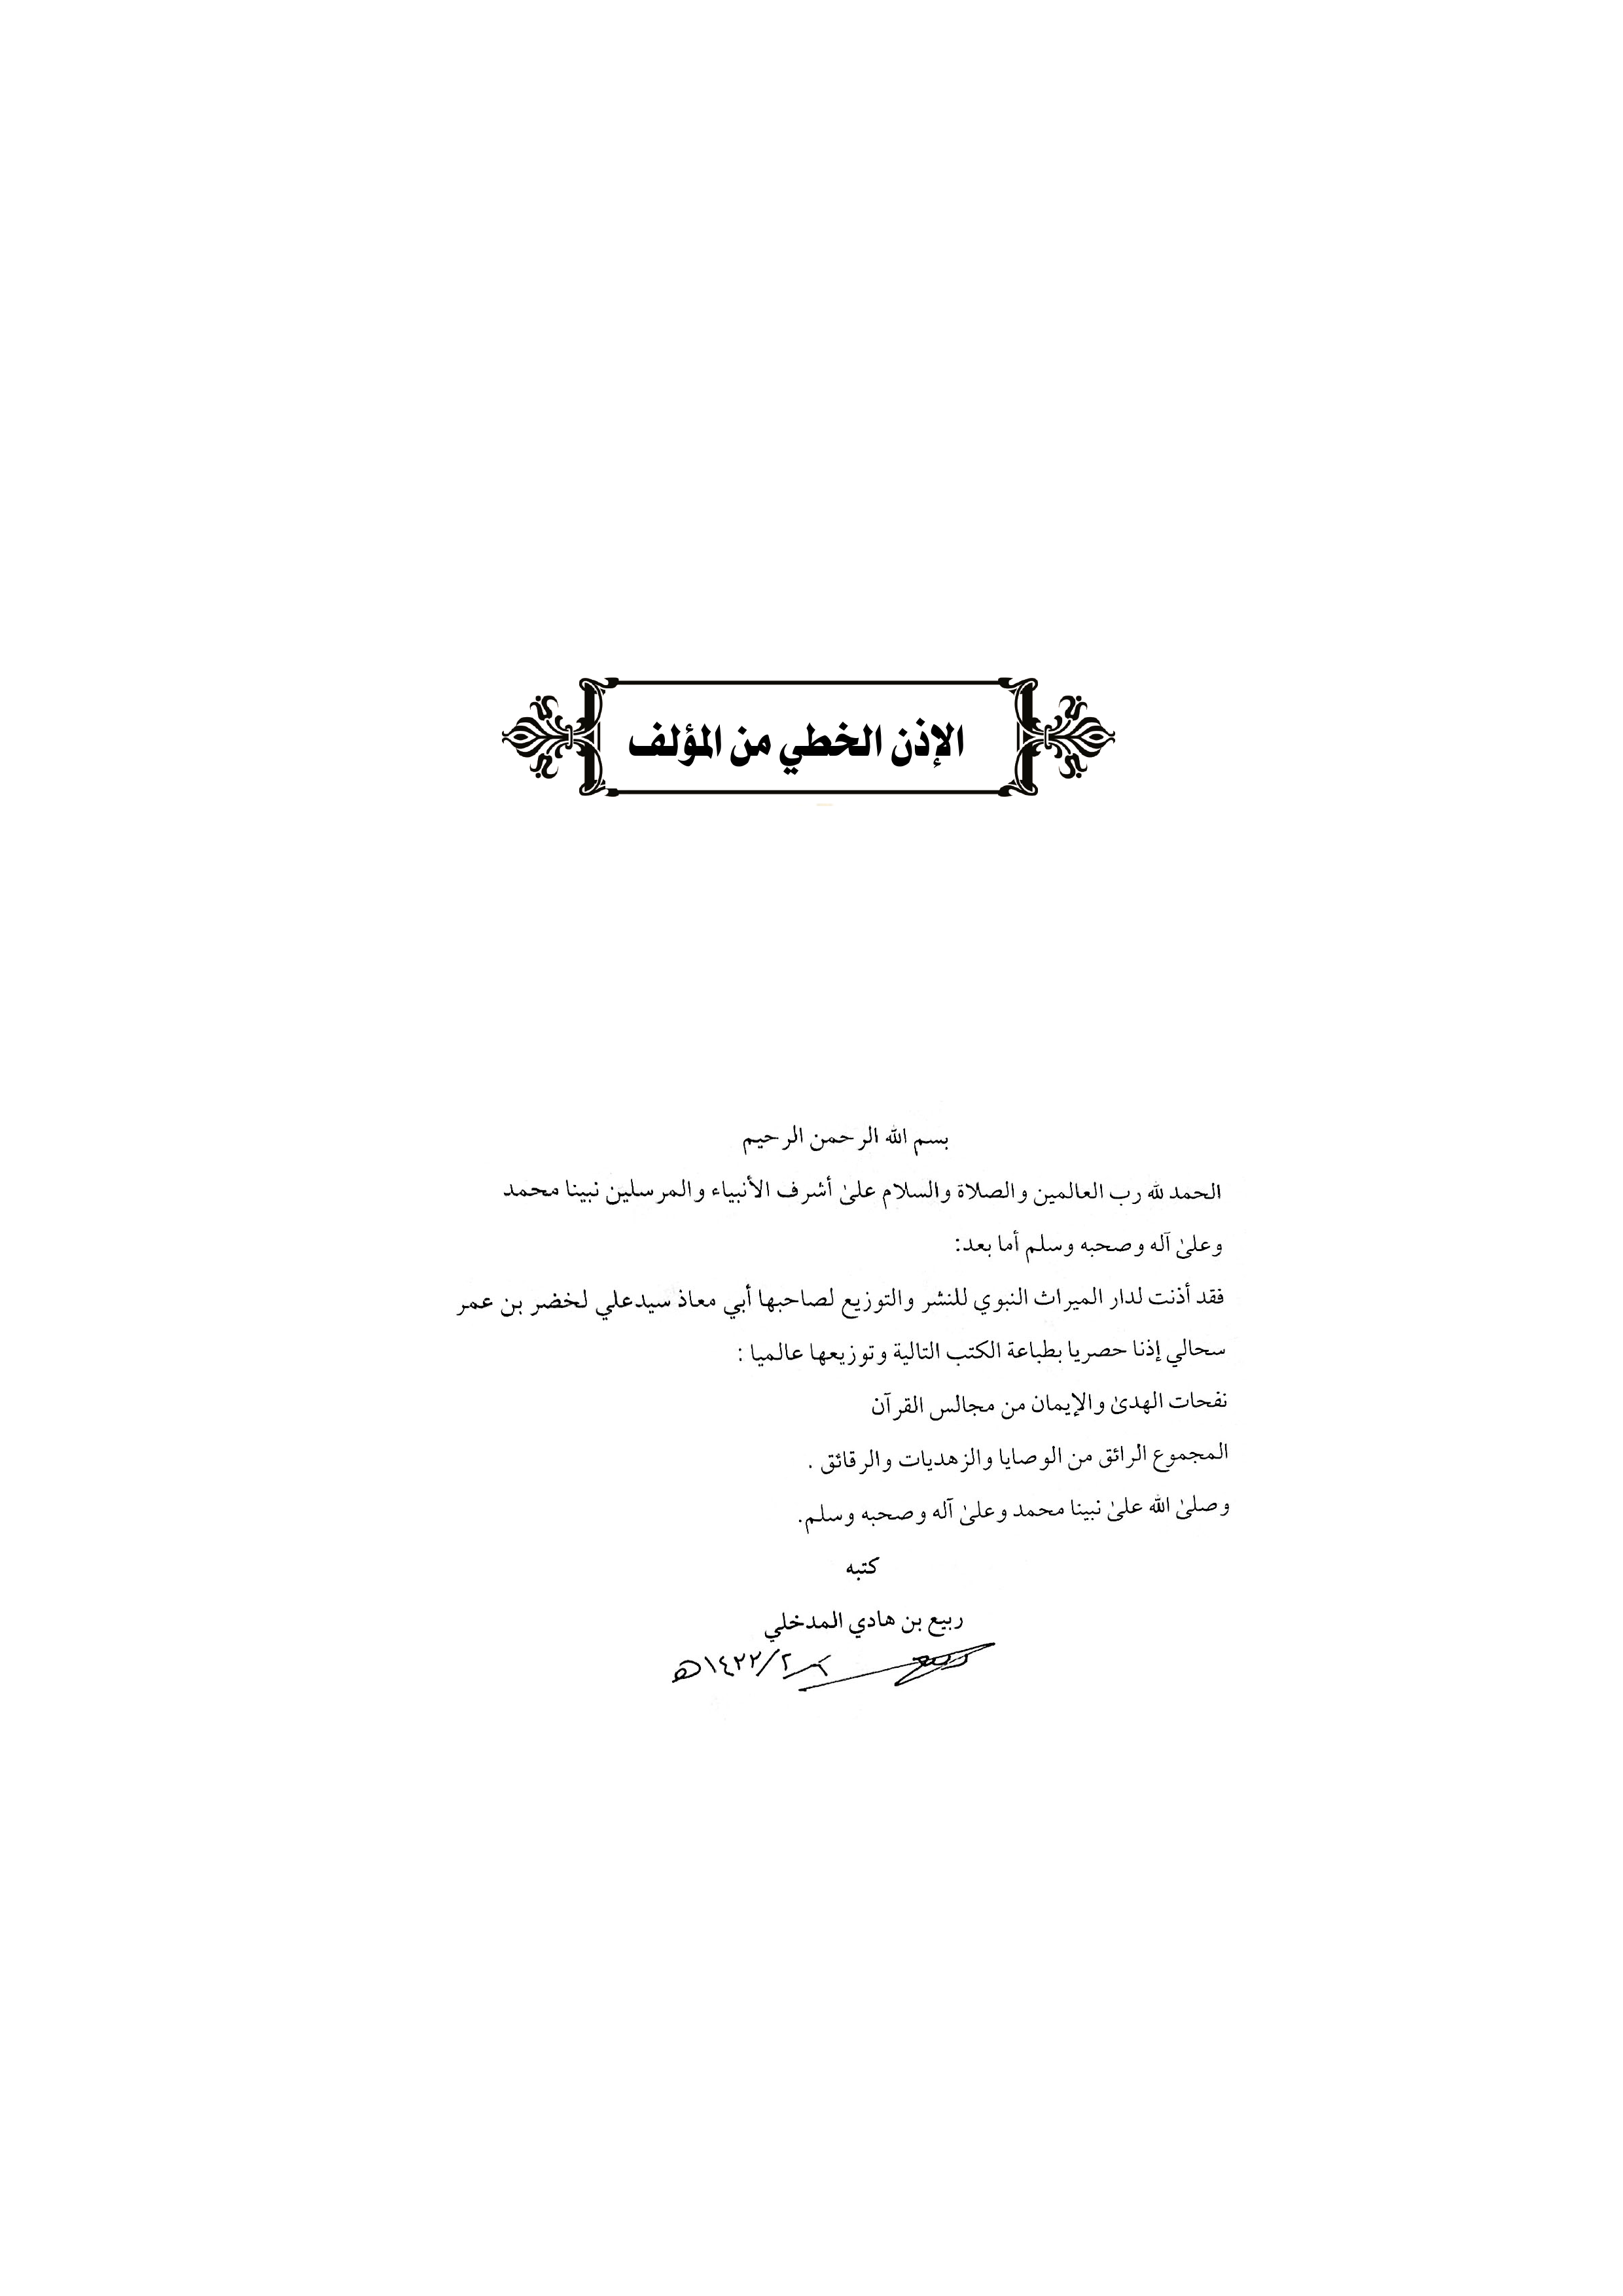 الإذن الخطي من المؤلف
بسم الله الرحمن الرحيم
الحمد لله رب العالمين والصلاة والسلام علىٰ أشرف الأنبياء والمرسلين نبينا محمد
وعلىٰ آله وصحبه وسلم أما بعد:
فقد أذنت لدار الميراث النبوي للنشر والتوزيع لصاحبها أبي معاذ سيدعلي لخضر بن عمر
سحالي إذنا حصريا بطباعة الكتب التالية وتوزيعها عالميا :
نفحات الهدىٰ والإيمان من مجالس القرآن
المجموع الرائق من الوصايا والزهديات والرقائق .
وصلىٰ الله علىٰ نبينا محمد وعلىٰ آله وصحبه وسلم.
كتبه
ربيع بن هادي المدخلي